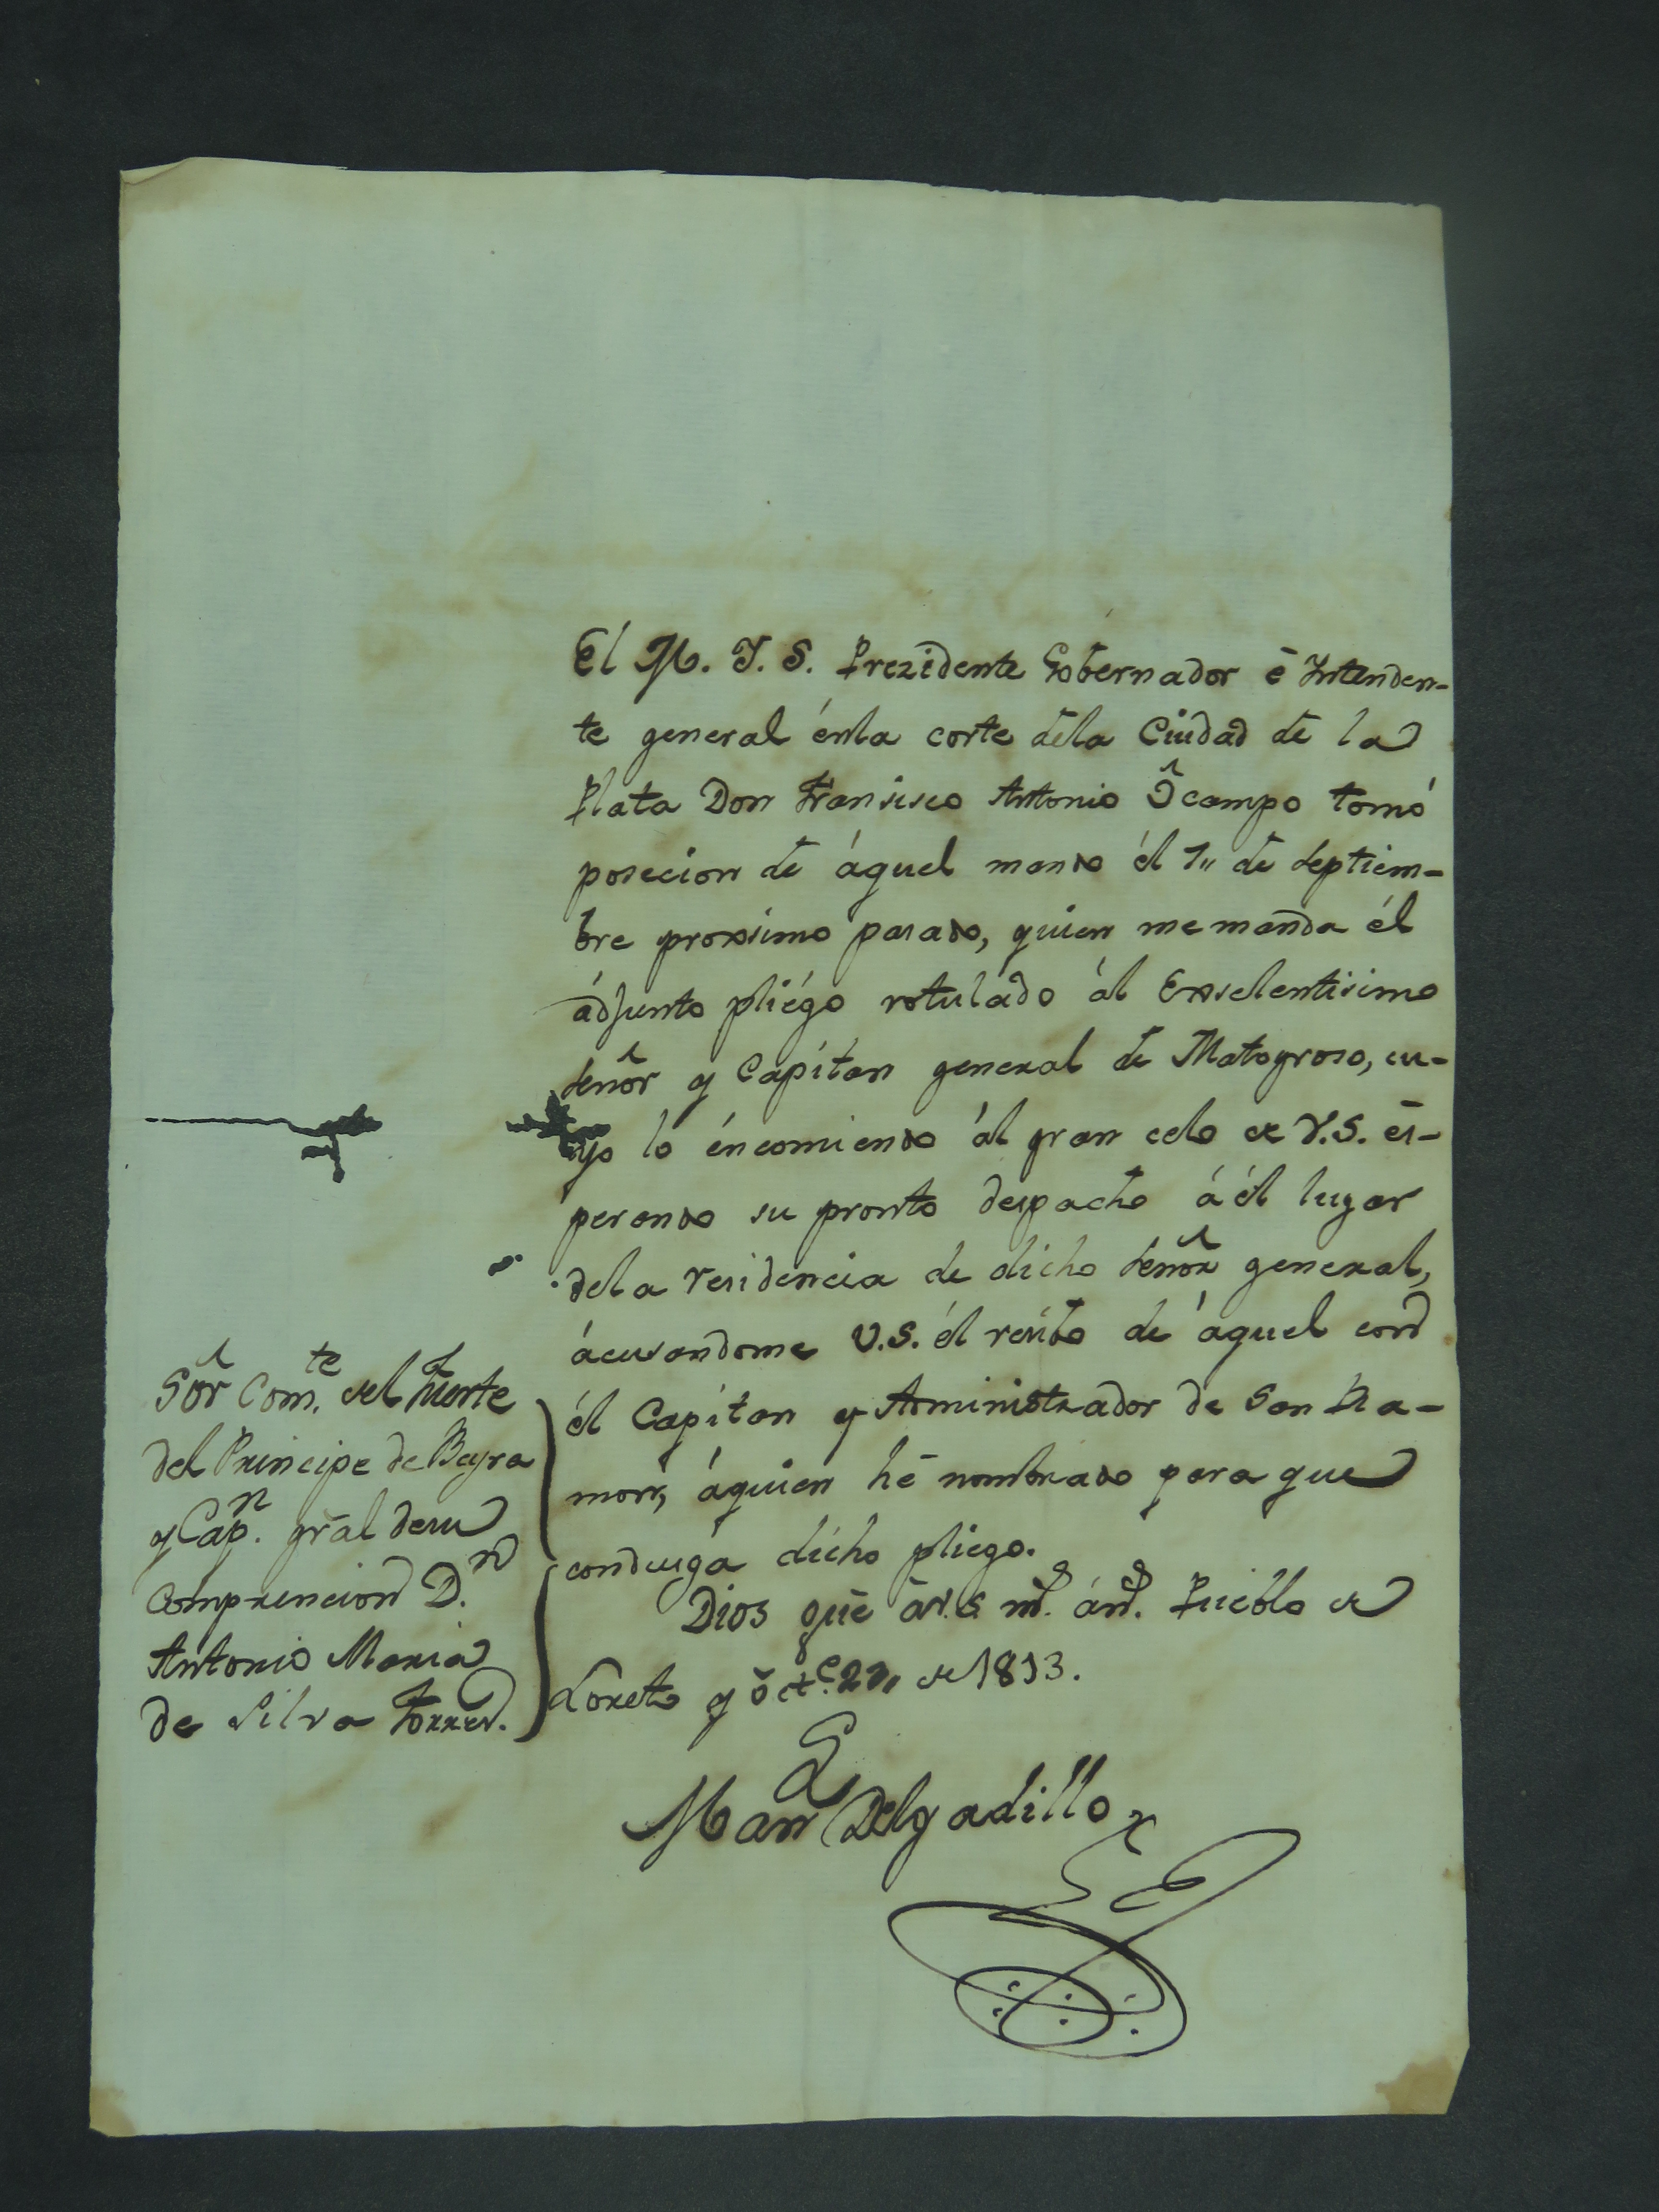 El M. Y. S. Prezidente Gobernador é Intenden-
te general énla corte dela Ciudad de la
Plata Don Fransisco Antonio Ócampo tomó
posecion de áquel mando él 1" de Septiem-
bre proxsimo pasado, quien me manda él
ádjunto pliégo rotuládo ál Exselentisimo
Señor y Capítan general de Matogroso, cu-
yo lo éncomiendo ál gran celo de V.S. és-
perando su pronto despacho á él lugar
dela residencia de dicho Señor general,
ácusandome V.S. él resibo de áquel con
él Capítan y Administrador de San Ra-
mon, áquien hé nombrado para que
condusga dicho pliego.
Dios gūe á V.S. m.s án.s Pueblo de
Loreto y óct.e 20" de 1813.
Man.l Delgadillo
Sōr Com.te del Fuerte
del Principe de Beyra
y Cap.n grāl desu
Comprencion D.n
Antonio Maria
de Silva Torres.